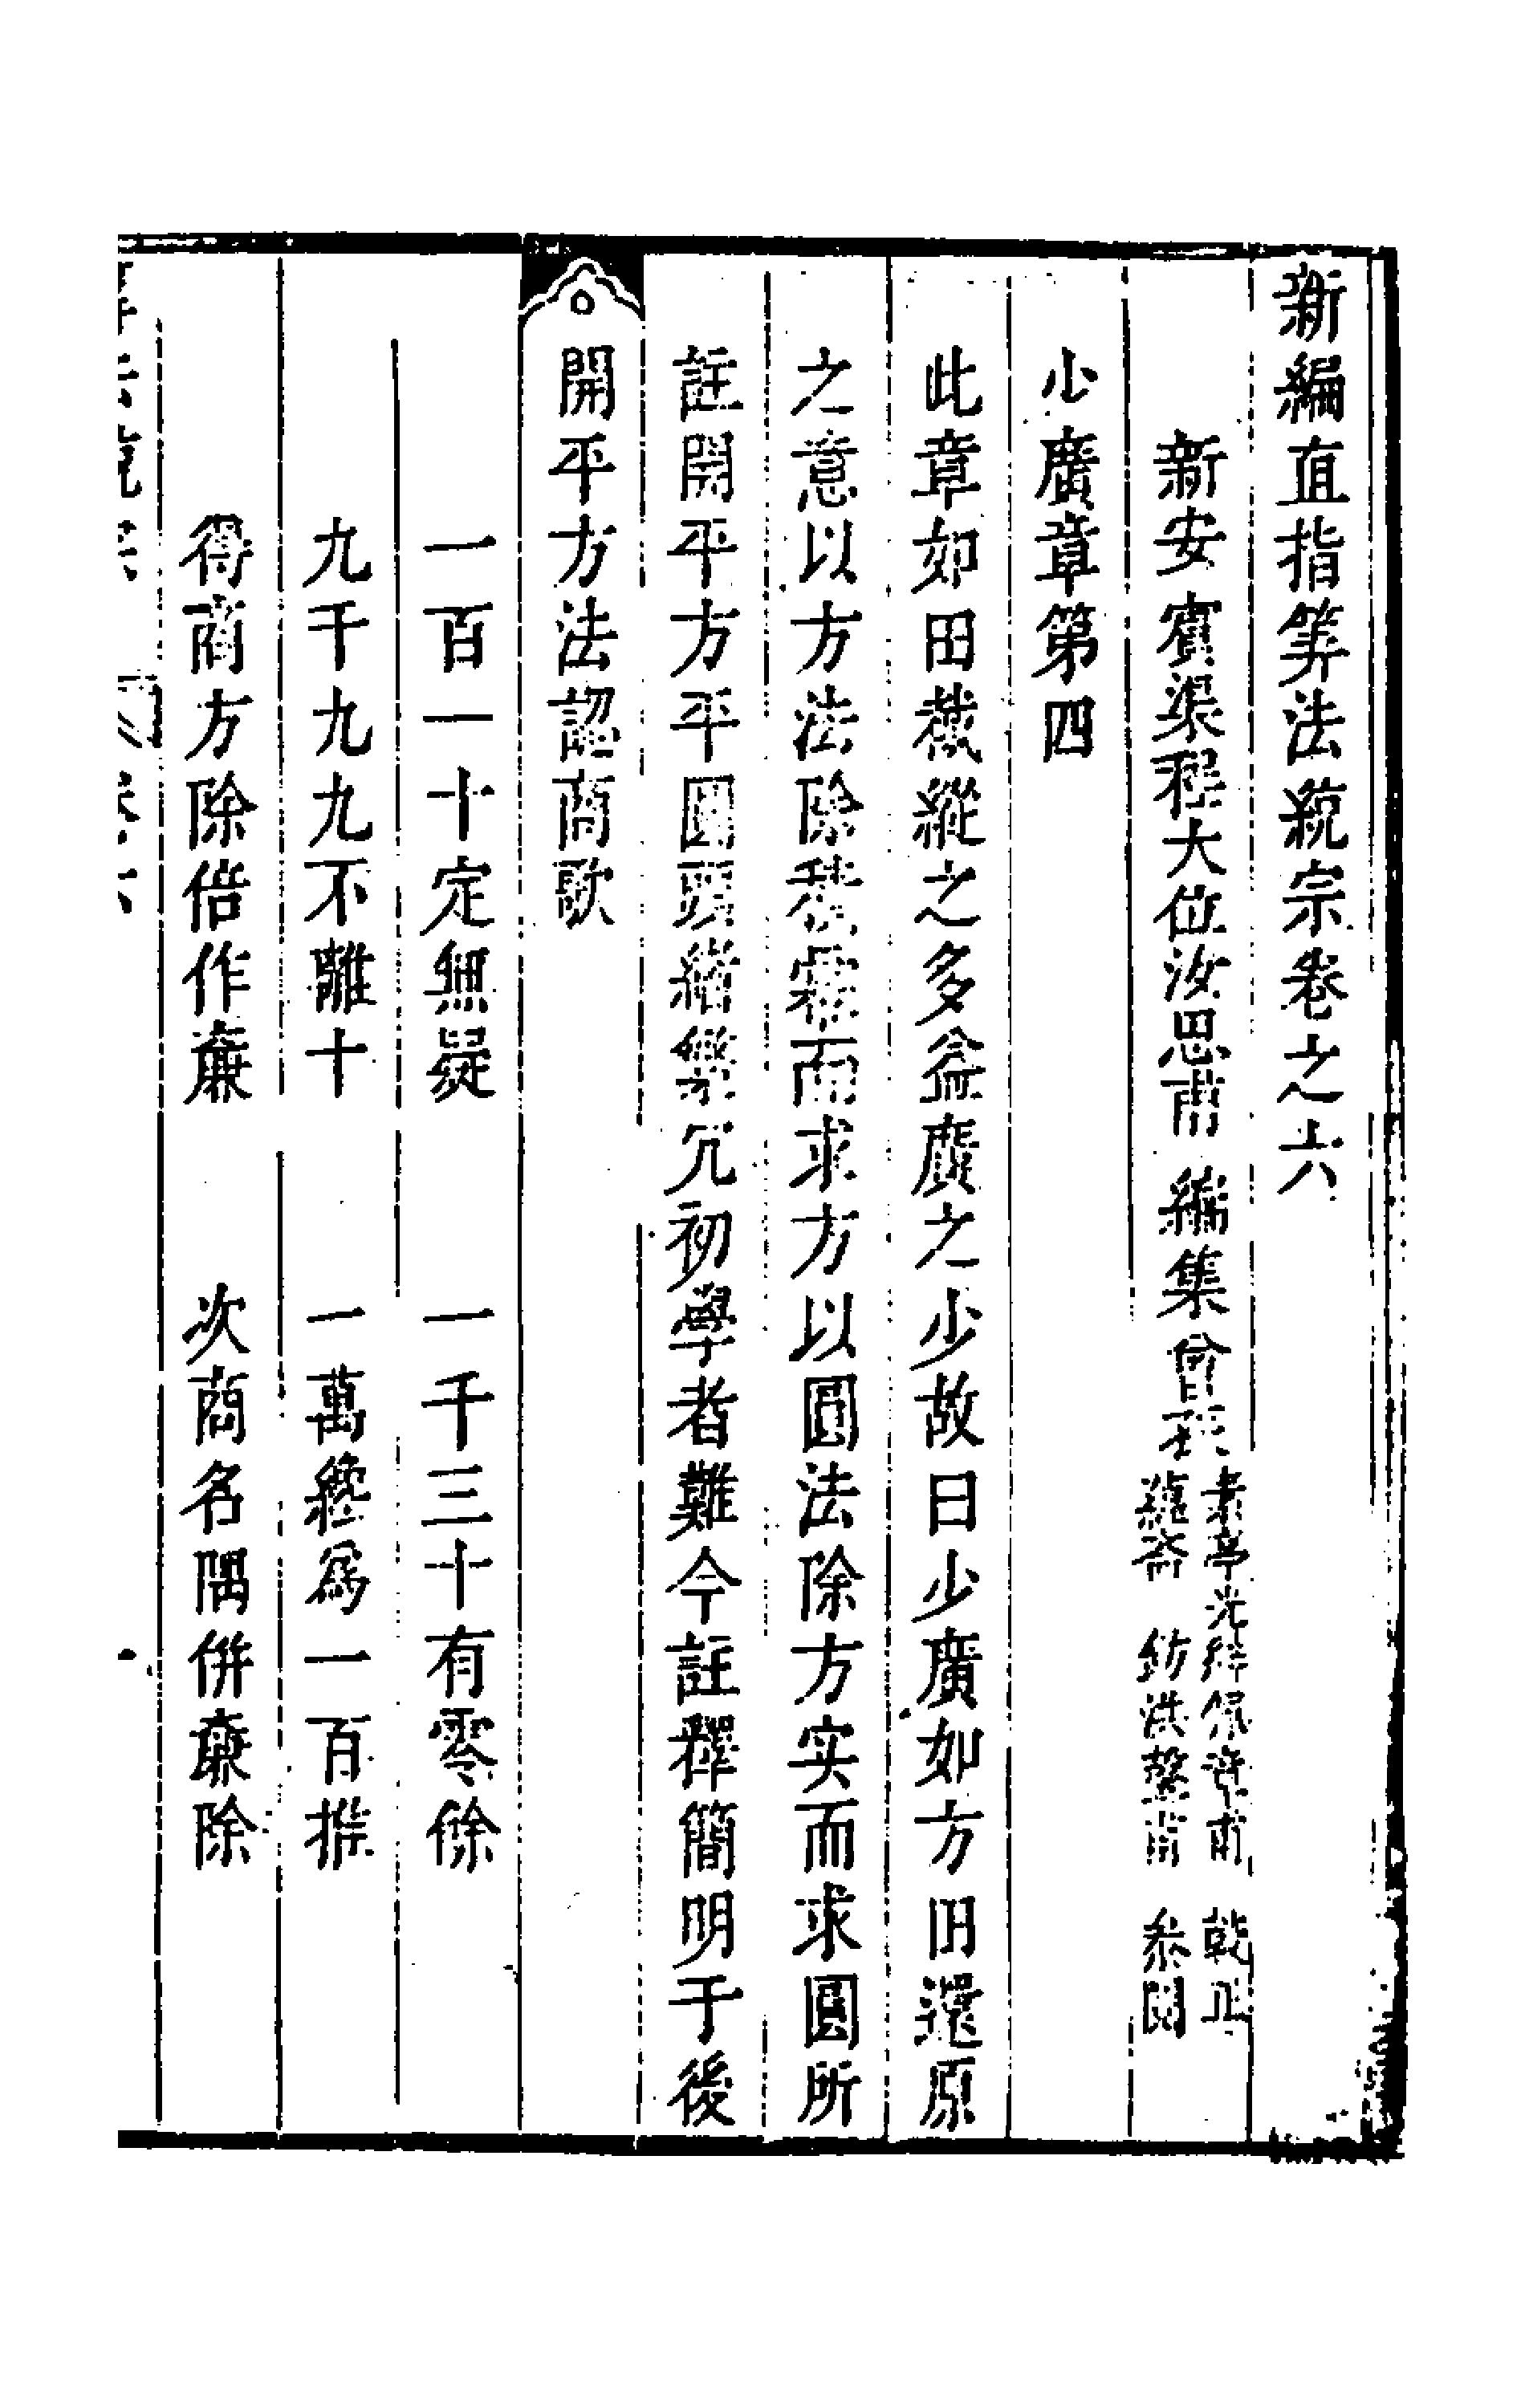 新編直指筭法統宗卷之六
新安賓渠程大位汝思甫 編集 曾孫
素亭光紳佩章甫 乾正
蘊斋 鈁洪聲甫 叅閱
少廣章第四
此章如田截縱之多益廣之少故曰少廣如方田還原
之意以方法除積冪而求方以圓法除方实而求圓所
註開平方平圓頭緒繁冗初學者難今註釋簡明于後
開平方法認商歌
一百一十定無疑 一千三十有零餘
九千九九不離十 一萬纔爲一百推
得商方除倍作廉 次商名隅併廉除